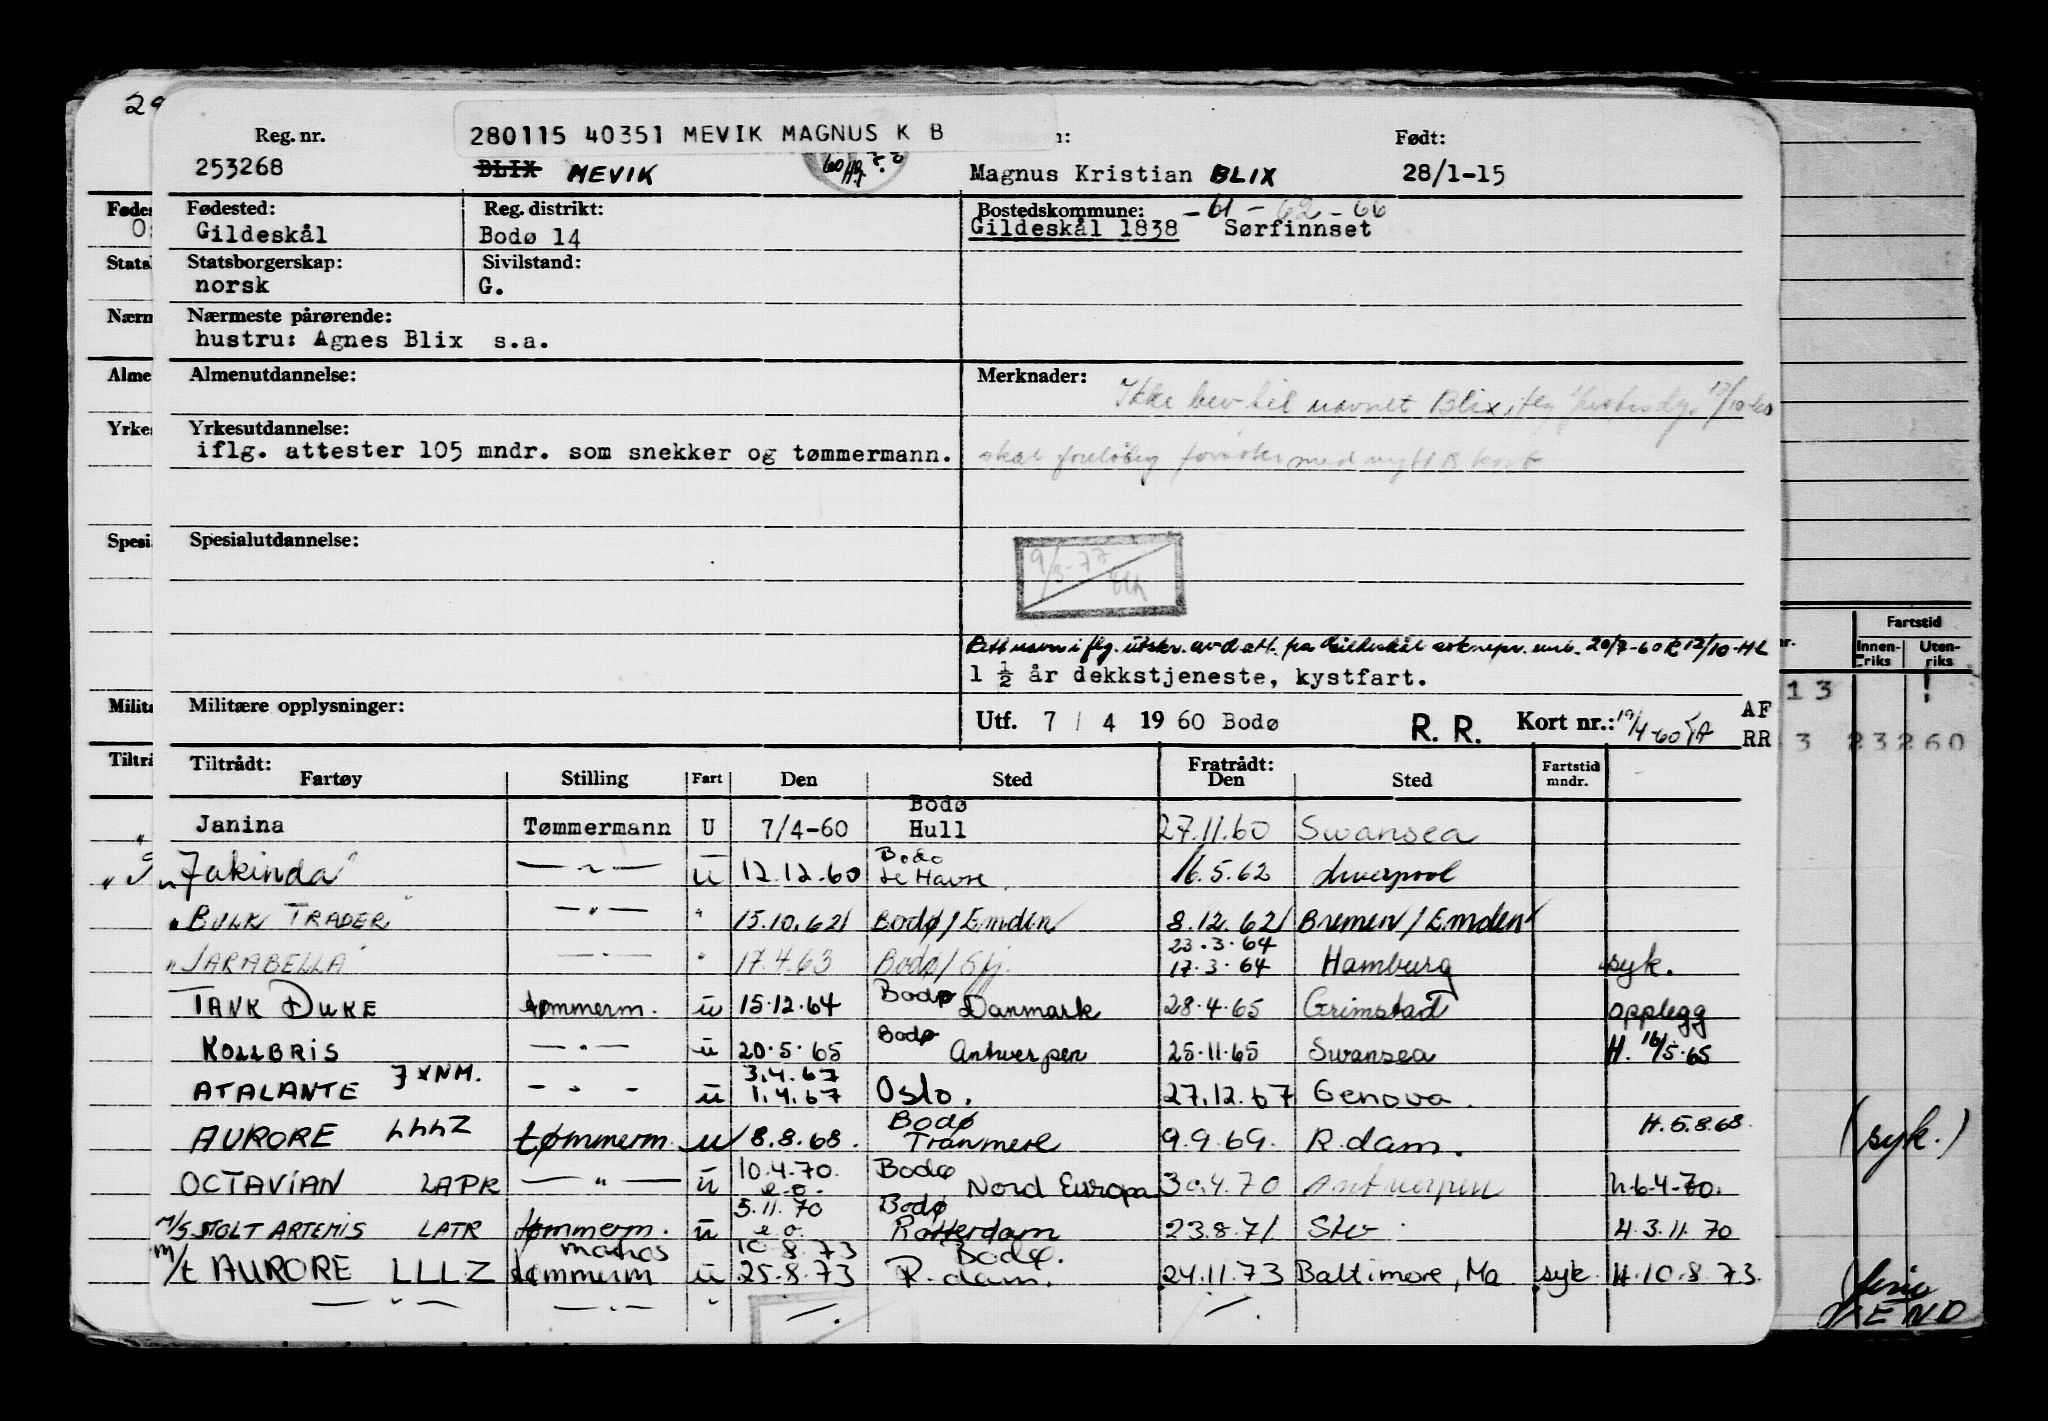 29
280115 40351 MEVIK MAGNUS K B
Reg. nr. Født:
253268 BLIX MEVIK Magnus Kristian BLIX 28/1-15
Fødested: Reg. distrikt: Bostedskommune: -61-62-66
Gildeskål Bodø 14 Gildeskål 1838 Sørfinnset
Statsborgerskap: Sivilstand:
norsk G.
Nærmeste pårørende:
hustru: Agnes Blix s.a.
Almenutdannelse: Merknader:
Ikke bev til navnet Blix
Yrkesutdannelse:
iflg. attester 105 mndr. som snekker og tømmermann.
skal foreløbig med nytt kort
Spesialutdannelse:
9/3-77
Rett navn i flg. utskr. av d.att. fra Gildeskål 20/7-60 12/10-HL
1 1/2 år dekkstjeneste, kystfart.
Militære opplysninger: Utf. 7 / 4 1960 Bodø R. R. Kort nr.: 19/4-60 AF
RR
Tiltrådt: Fratrådt: Fartstid
Fartøy Stilling Fart Den Sted Den Sted mndr.
Bodø
Janina Tømmermann U 7/4-60 Hull 27.11.60 Swansea
Bodø
"Jakinda" — " — u 12.12.60 Le Havre 16.5.62 Liverpool
"BULK TRADER" — " — " 15.10.62 Bodø/Emden 8.12.62 Bremen/Emden
23.3.64
"JARABELLA" — " — " 17.4.63 Bodø/ 17.3.64 Hamburg syk.
TANK DUKE tømmerm. u 15.12.64 Bodø Danmark 28.4.65 Grimstad opplegg
KOLLBRIS — " — u 20.5.65 Bodø Antwerpen 25.11.65 Swansea H. 16/5.65
3.4.67
ATALANTE JXNM. - " - u 1.4.67 Oslo. 27.12.67 Genova.
Bodø
AURORE LLLZ tømmerm. u 8.8.68. Tranmere 9.9.69. R.dam. H.5.8.68.
10.4.70. Bodø
OCTAVIAN LAPR — " — u e.o. Nord Europa 30.4.70 Antwerpen H.6.4.70.
5.11.70 Bodø
M/S STOLT ARTEMIS LATR tømmerm. u e.o. Rotterdam 23.8.71 Stv. H.3.11.70
matros 10.8.73 Bodø.
M/t AURORE LLLZ tømmerm u 25.8.73 R.dam. 24.11.73 Baltimore, Ma syk. H.10.8.73.
— " — — " — " —/. —/.
Fartstid
Innen-riks Uten-riks
13
3 23260
(syk.)